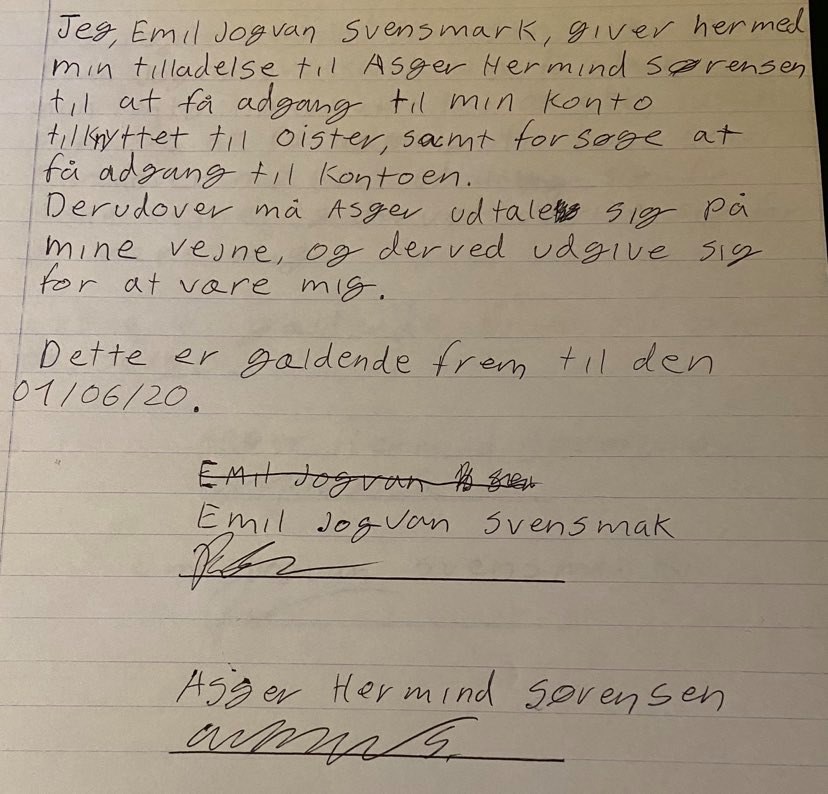 Jeg, Emil Jogvan Svensmark, giver hermed
min tilladelse til Asger Hermind Sørensen
til at få adgang til min konto
tilknyttet til oister, samt forsøge at
få adgang til kontoen.
Derudover må Asger udtale sig på
mine vejne, og derved udgive sig
for at være mig.
Dette er gældende frem til den
01/06/20.
Emil Jogvan
Emil Jogvan Svensmak
Asger Hermind Sørensen